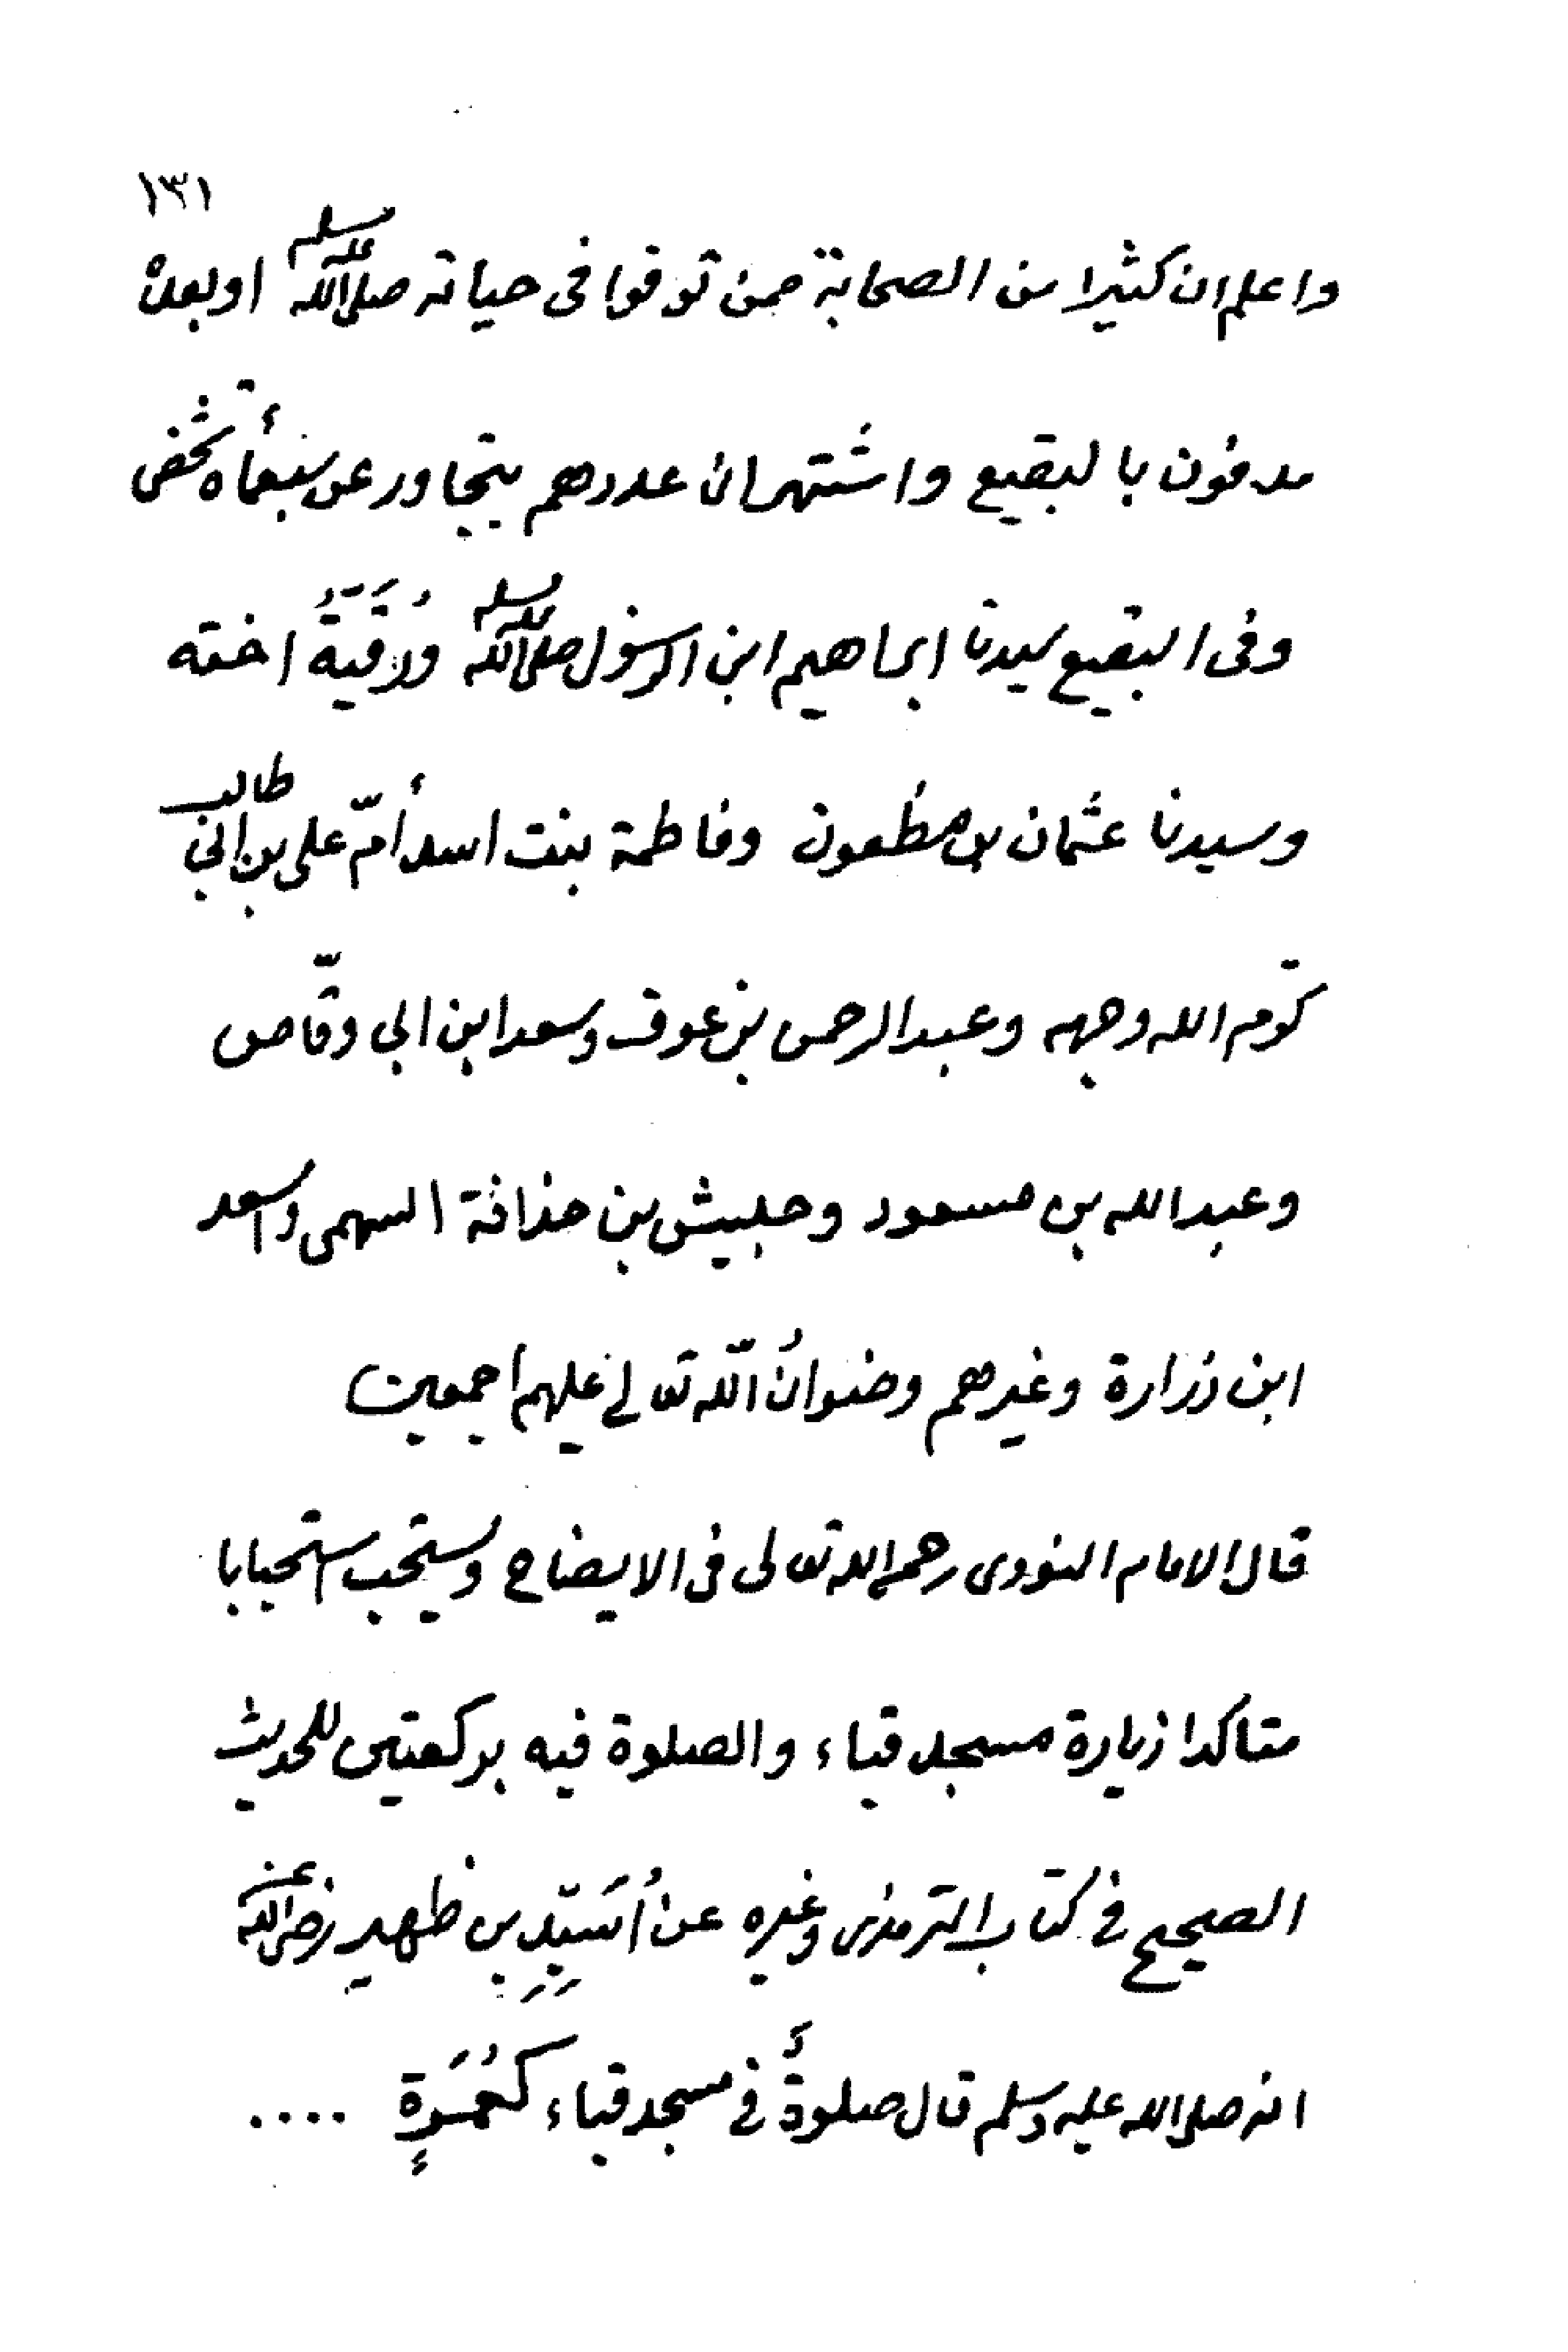 ١٣١
واعلم ان كثيرا من الصحابة ممن توفوا فى حياته صلى الله عليه وسلم او بعده
مدفون بالبقيع واشتهر ان عددهم يتجاور عن سبعمأة شخص
وفى البقيع سيدنا ابراهيم ابن الرسول صلى الله عليه وسلم ورُقَيَّةُ اخته
وسيدنا عثمان بن مظعون وفاطمة بنت اسد أمّ على بن ابي طالب
كرّم الله وجهه وعبد الرحمن بن عوف وسعد ابن ابي وقّاص
وعبد الله بن مسعود وحبيش بن حذافة السهمى واسعد
ابن زرارة وغيرهم رضوانُ اللّه تعالى عليهم اجمعين
قال الامام النووى رحمه الله تعالى فى الايضاح ويستحب استحبابا
متاكدا زيارة مسجد قباء والصلوة فيه بركعتين للحديث
الصحيح فى كتاب الترمذى وغيره عن اُسَيِّدِ بن ظهير رضى الله عنه
انه صلى الله عليه وسلم قال صلوةٌ فى مسجد قباء كعُمْرَةٍ ....